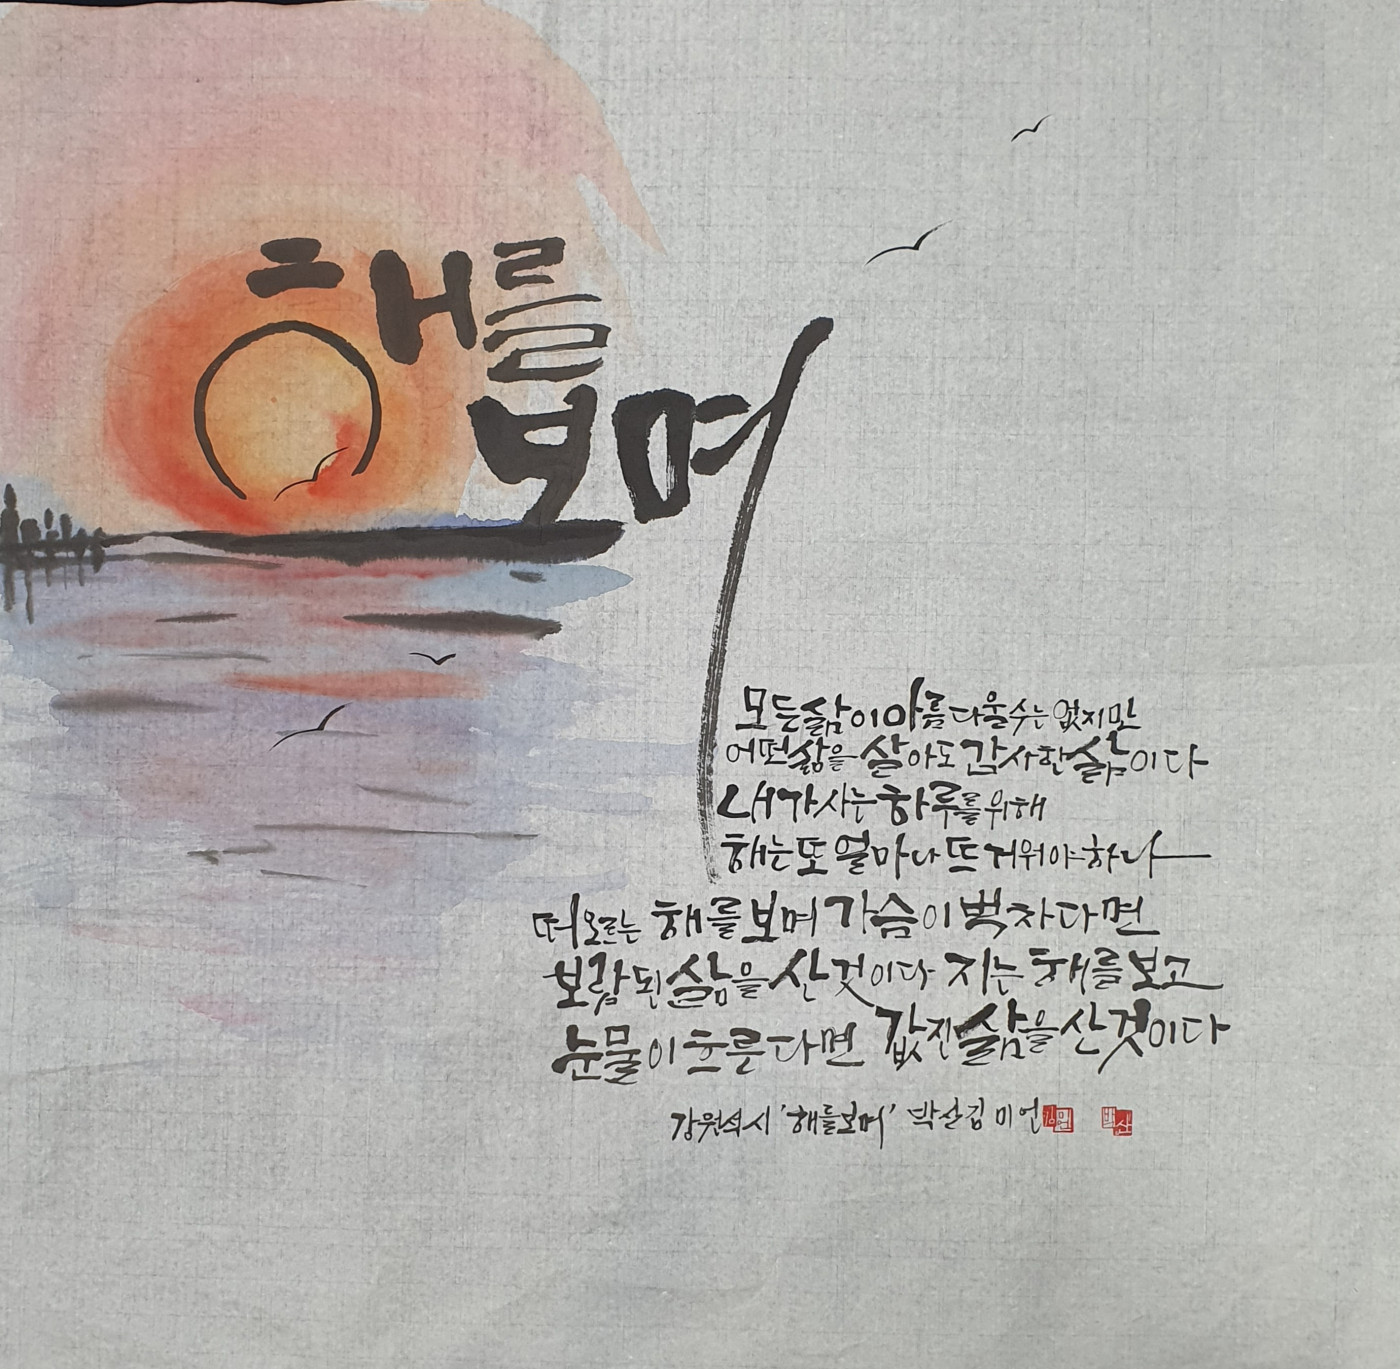 해를
보며
모든 삶이 아름다울 수는 없지만
어떤 삶을 살아도 감사한 삶이다
내가 사는 하루를 위해
해는 또 얼마나 뜨거워야 하나
떠오르는 해를 보며 가슴이 벅차다면
보람된 삶을 산 것이다 지는 해를 보고
눈물이 흐른다면 값진 삶을 산 것이다
강원석 시 '해를 보며' 박산 김미언